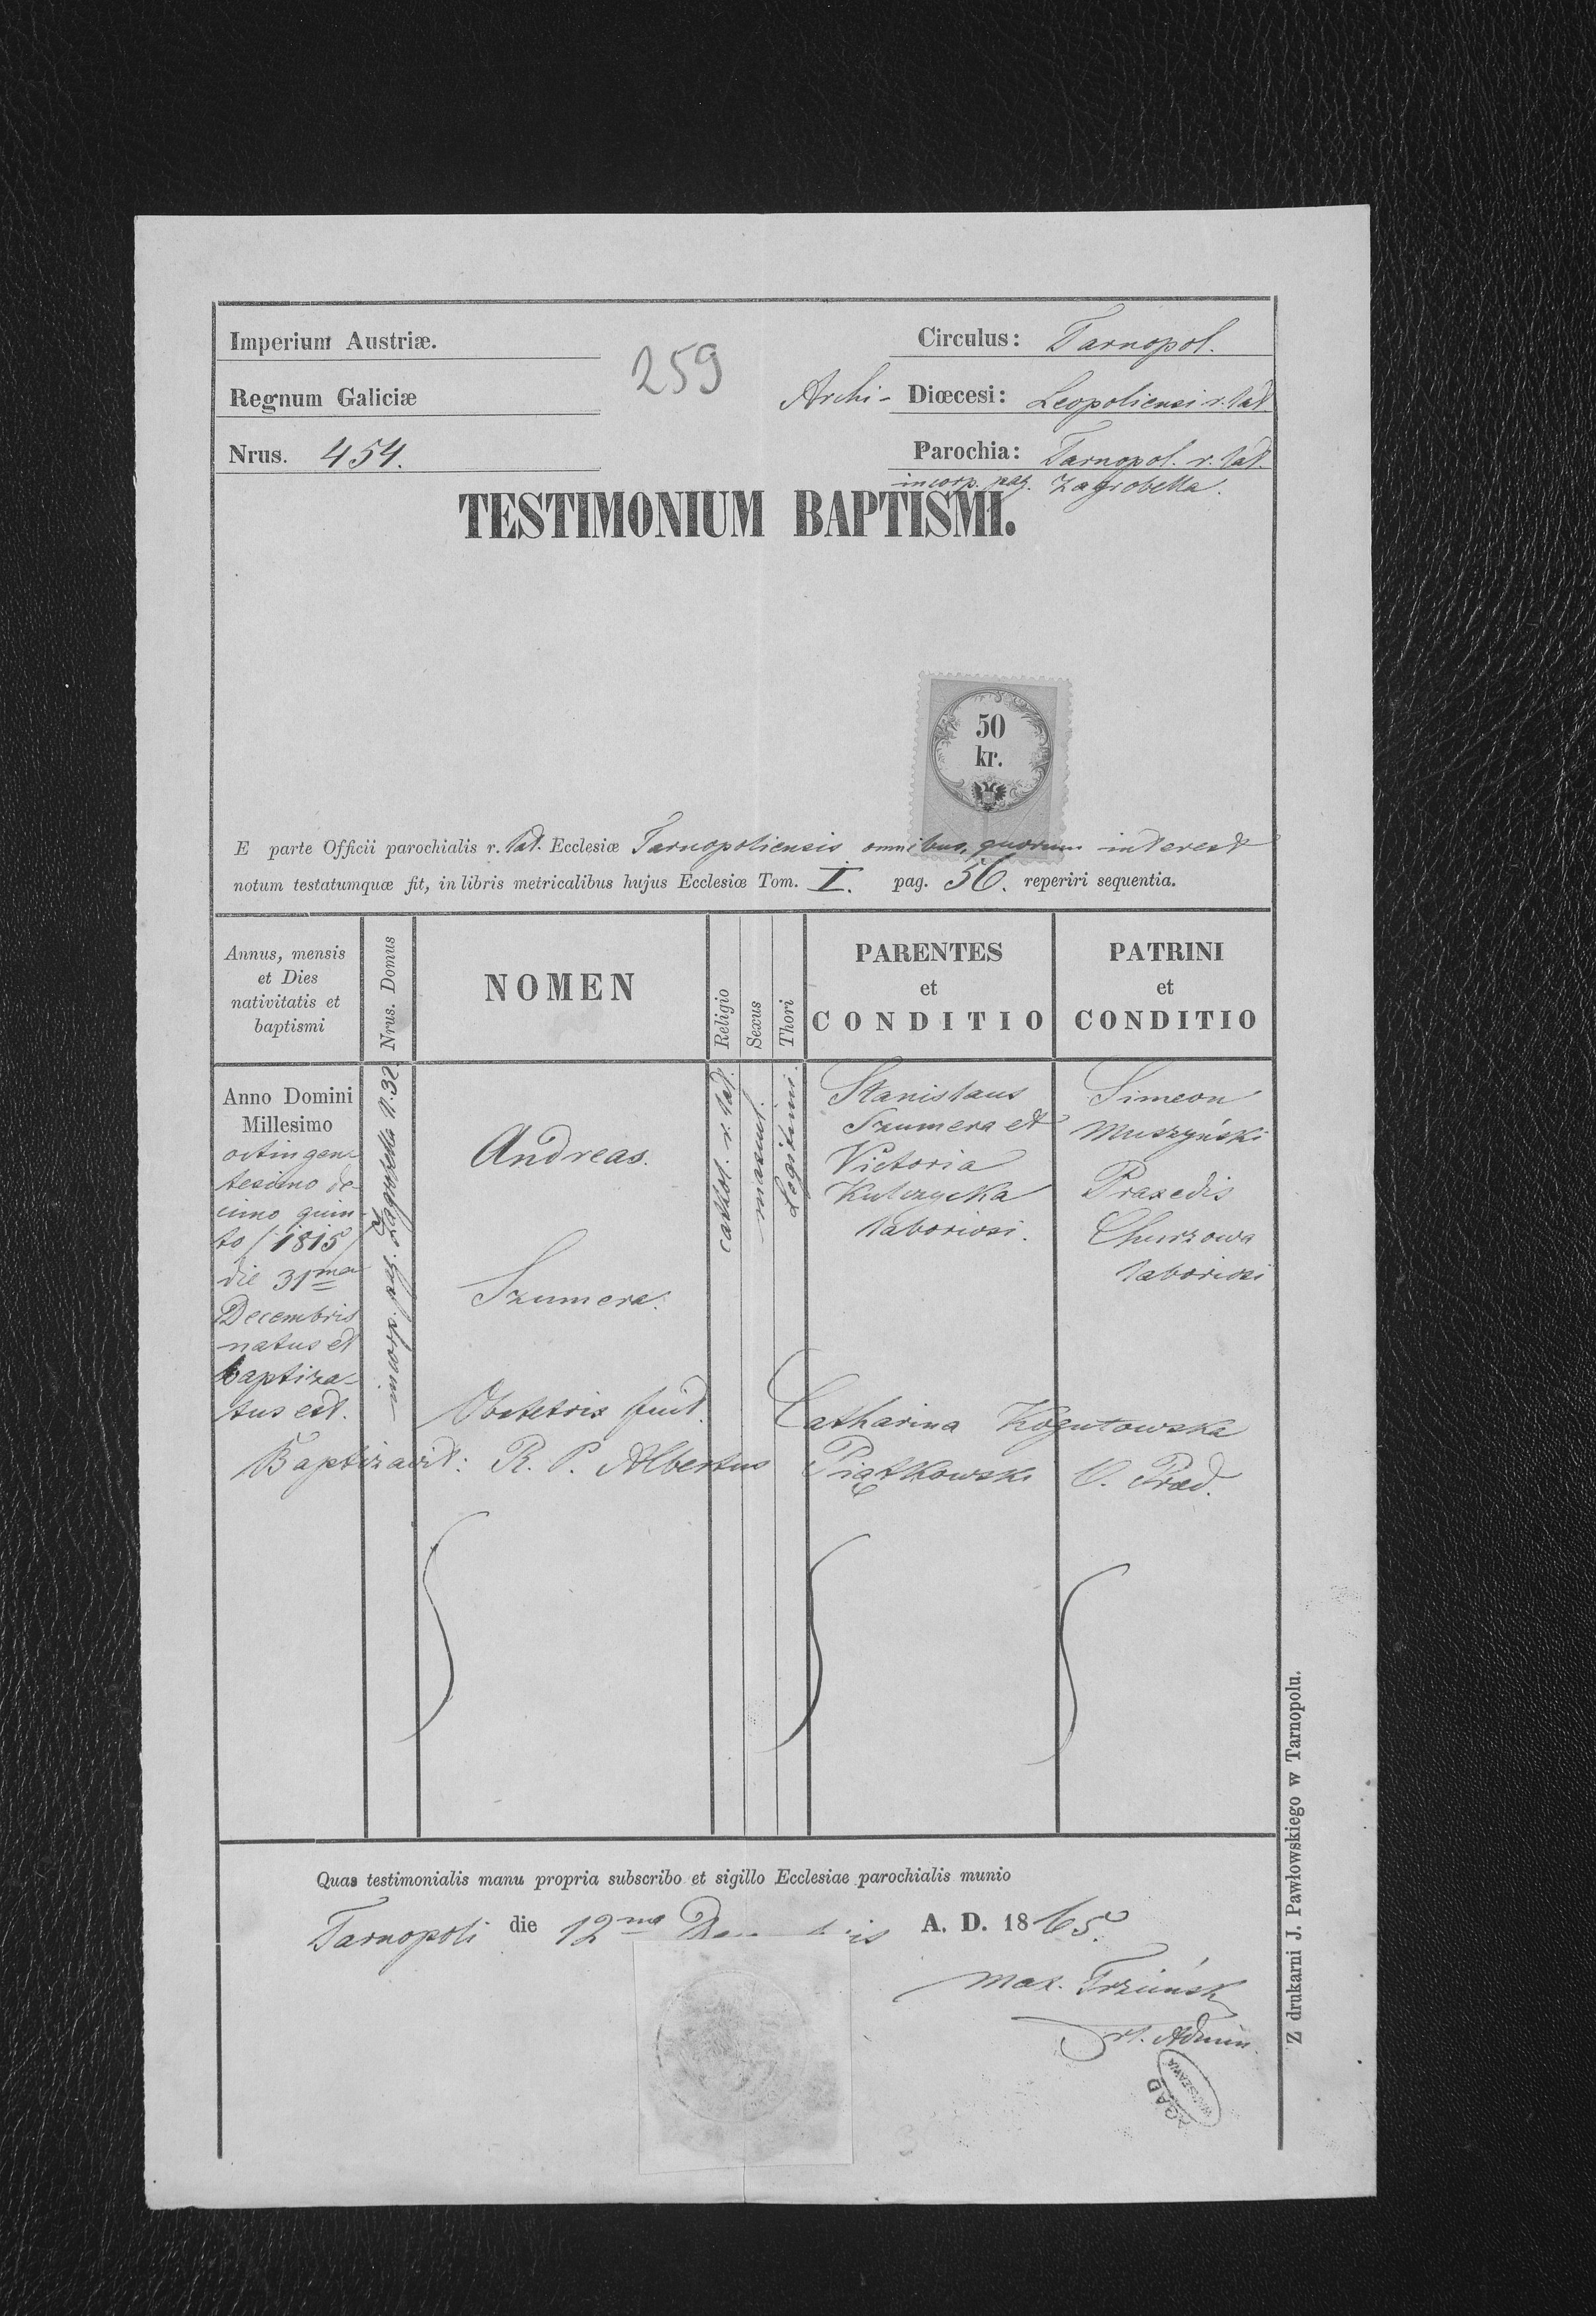 Imperium Austriæ.
259
Circulus: Tarnopol.
Regnum Galiciæ
Archi- Diœcesi: Leopoliensi r. lat.
Nrus. 454.
Parochia: Tarnopol. r. lat.
incorp. pag. Zagrobella.
TESTIMONIUM BAPTISMI.
50
kr.
E parte Officii parochialis r. lat. Ecclesiæ Tarnopoliensis omnibus, quorum interest
notum testatumquæ fit, in libris metricalibus hujus Ecclesiæ Tom. I. pag. 56. reperiri sequentia.
Annus, mensis
et Dies
nativitatis et
baptismi
Nrus. Domus
NOMEN
Religio
Sexus
Thori
PARENTES
et
CONDITIO
PATRINI
et
CONDITIO
Anno Domini
Millesimo
octingen
tesimo de-
cimo quin-
to /1815/
die 31ma
Decembris
natus et
baptiza-
tus est.
incorp. pag. Zagrobella N. 32
Andreas.
Szumera.
cathol. r. lat.
mascul.
Legitimi.
Stanislaus
Szumera et
Victoria
Kulczycka
laboriosi.
Simeon
Muszyński
Praxedis
Churzowa
laboriosi
Obstetrix fuit. Catharina Kogutowska
Baptizavit: R. P. Albertus Piątkowski O. Præd.
Quas testimonialis manu propria subscribo et sigillo Ecclesiae parochialis munio
Tarnopoli die 12ma A. D. 1865.
Max.
Admin.
AGAD
WARSZAWA
Z drukarni J. Pawłowskiego w Tarnopolu.